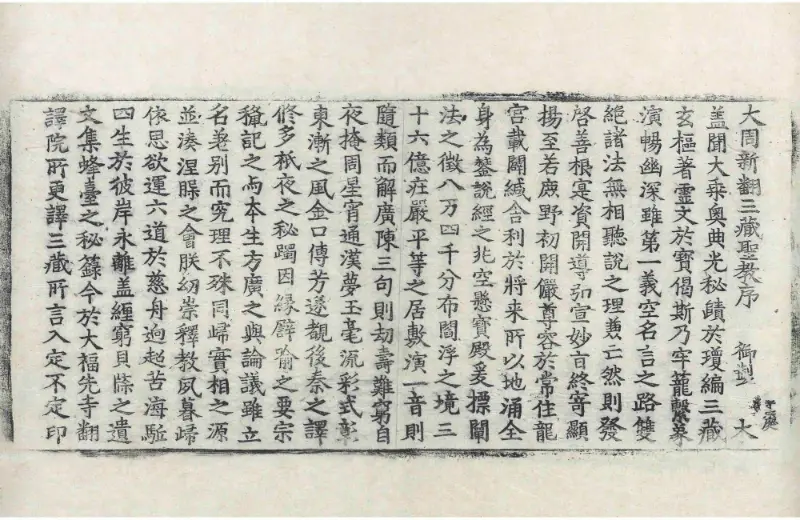 大周新翻三藏聖教序 御製 大
蓋聞大乘奧典光秘賾於瓊編三藏
玄樞著靈文於寶偈斯乃牢蘢繫象
演暢幽深雖第一義空名言之路雙
絕諸法無相聽說之理兼亡然則發
啓善根寔資開導弘宣妙旨終寄顯
揚至若鹿野初開儼尊容於常住龍
宮載闢緘舍利於將來所以地涌全
身為鍳說經之兆空懸寶殿爰標闡
法之徵八万四千分布閻浮之境三
十六億莊嚴平等之居敷演一音則
隨類而解廣陳三句則劫壽難窮自
夜掩周星宵通漢夢玉毫流彩式彰
東漸之風金口傳芳遂覩後秦之譯
修多祇夜之秘躅因緣譬喻之要宗
記之与本生方廣之與論議雖立
名差別而究理不殊同歸實相之源
並湊涅槃之會朕幼崇釋教夙暮歸
依思欲運六道於慈舟逈超苦海駈
四生於彼岸永離盖纏窮貝牒之遺
文集蜂臺之秘籙今於大福先寺翻
譯院所更譯三藏所言入定不定印